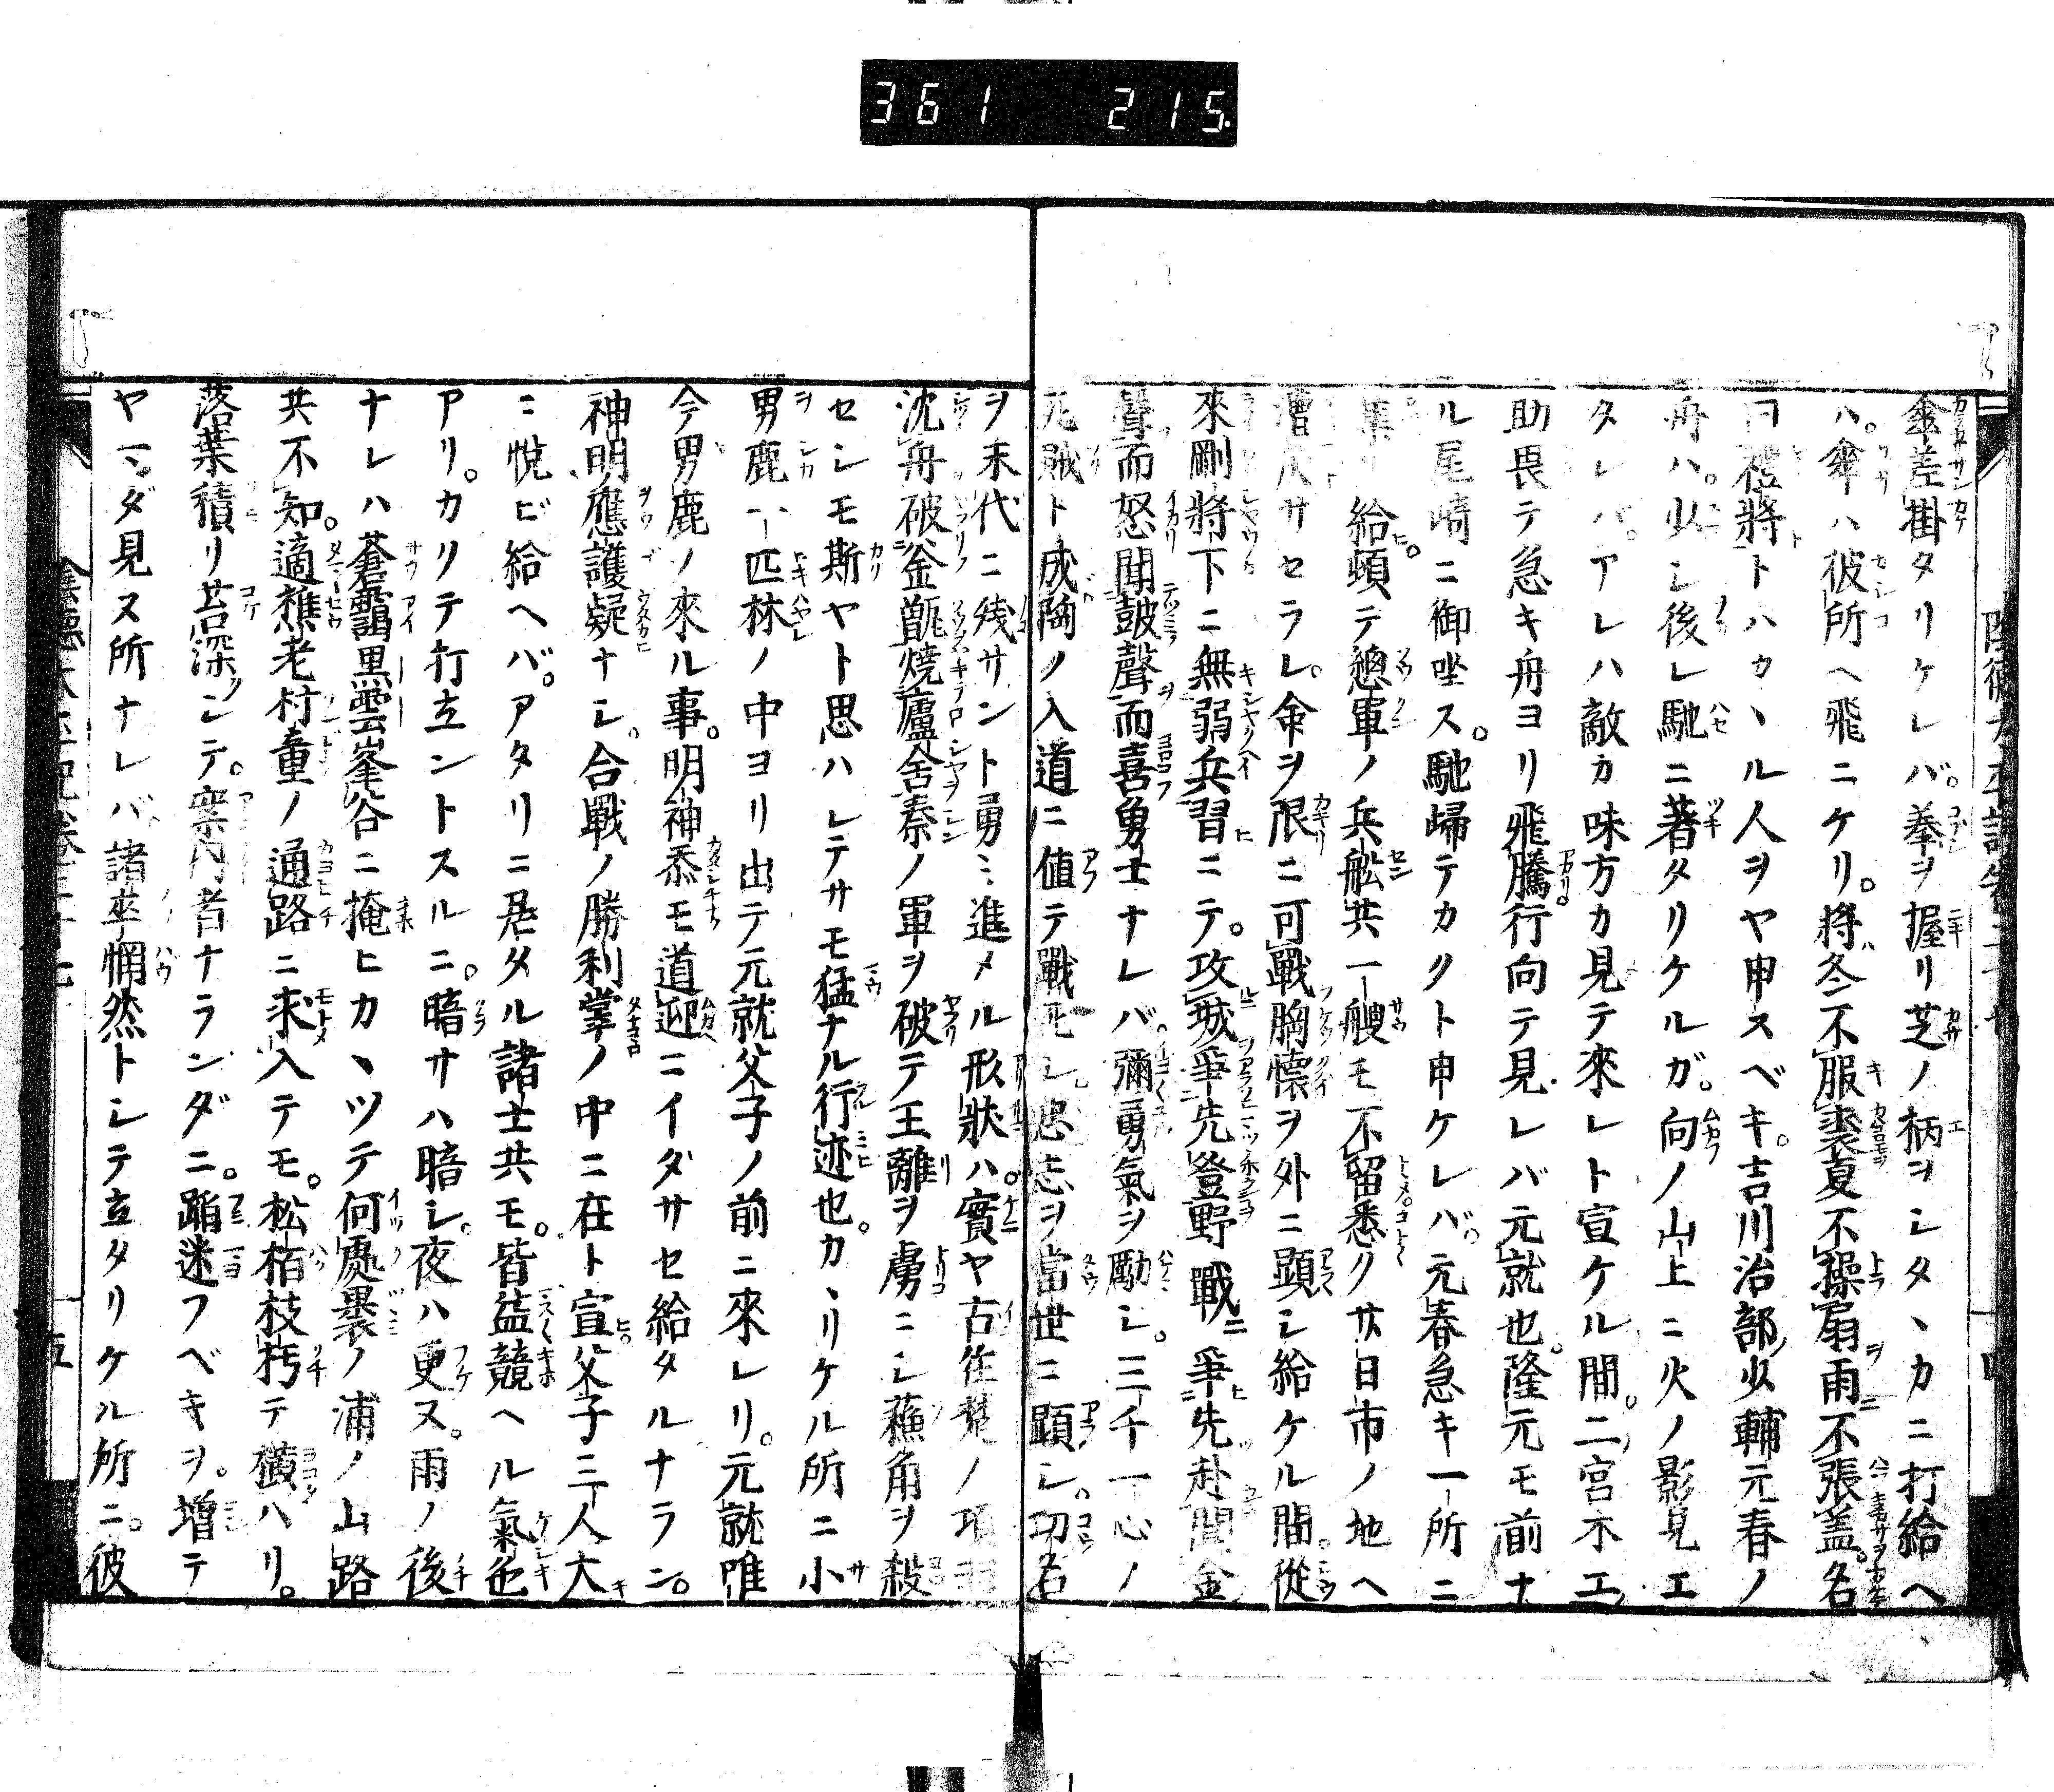 361 215.
傘差掛タリケレバ。拳ヲ握リ芝ノ柄ヲシタヽカニ打給ヘ
ハ。傘ハ彼所ヘ飛ニケリ。將冬不服裘夏不操扇雨不張蓋。名
曰禮將トハカヽル人ヲヤ申スベキ。吉川治部少輔元春ノ
舟ハ。少シ後レ馳ニ著タリケルガ。向ノ山上ニ火ノ影見エ
タレバ。アレハ敵カ味方カ見テ來レト宣ケル間。二宮木工
助畏テ急キ舟ヨリ飛騰。行向テ見レバ元就也。隆元モ前ナ
ル尾崎ニ御坐ス。馳歸テカクト申ケレバ。元春急キ一所ニ
給。頓テ總軍ノ兵舩共一艘モ不留悉ク廿日市ノ地ヘ
漕戻サセラレ。命ヲ限ニ可戰胸懷ヲ外ニ顯シ給ケル間。從
來剛將下ニ無弱兵習ニテ。攻城爭先登野戰ニ爭先赴聞金
聲而怒聞鼓聲而喜勇士ナレバ。彌勇氣ヲ勵シ。三千一心ノ
死賊ト成陶ノ入道ニ値テ戰死シ。忠志ヲ當世ニ顯シ。功名
ヲ末代ニ殘サント勇ミ進メル形狀ハ。實ヤ古往楚ノ項羽
沈舟破釜甑燒廬舍秦ノ軍ヲ破テ王離ヲ虜ニシ蘓角ヲ殺
セシモ斯ヤト思ハレテサモ猛ナル行迹也。カヽリケル所ニ小
男鹿一匹林ノ中ヨリ出テ元就父子ノ前ニ來レリ。元就唯
今男鹿ノ來ル事。明神忝モ道迎ニイダサセ給タルナラン。
神明應護疑ナシ。合戰ノ勝利掌ノ中ニ在ト宣。父子三人大
ニ悅ビ給ヘバ。アタリニ居タル諸士共モ。皆益競ヘル氣色
アリ。カリテ打立ントスルニ。暗サハ暗シ。夜ハ更ヌ。雨ノ後
ナレハ蒼靄黑雲峯谷ニ掩ヒカヽツテ何處裹ノ浦ノ山路
共不知。適樵老村童ノ通路ニ求入テモ。松栢枝朽テ横ハリ。
落葉積リ苔深シテ。案内者ナランダニ。踏迷フベキヲ。増テ
ヤマダ見ヌ所ナレバ。諸卒惘然トシテ立タリケル所ニ。彼